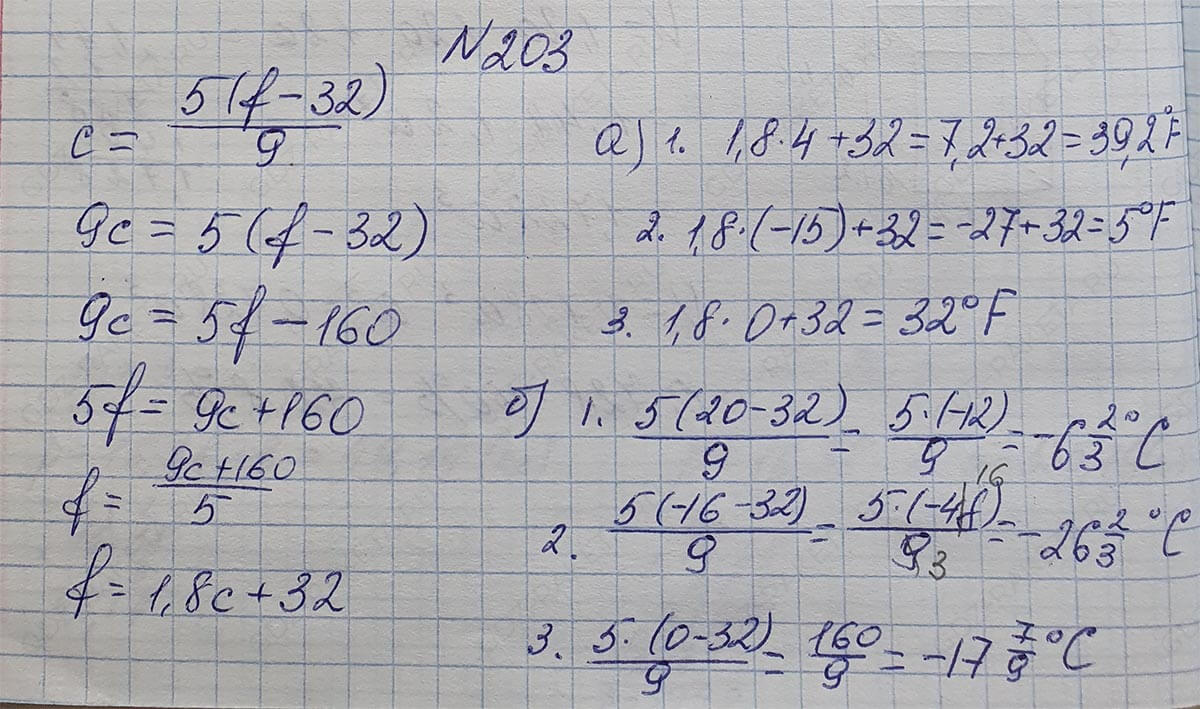 N203
c = 5(f-32)/9
9c = 5(f-32)
9c = 5f-160
5f = 9c+160
f = 9c+160/5
f = 1,8c+32
а) 1. 1,8·4+32=7,2+32=39,2°F
2. 1,8·(-15)+32=-27+32=5°F
3. 1,8·0+32=32°F
б) 1. 5(20-32)/9 = 5·(-12)/9 = -6 2/3 °C
2. 5(-16-32)/9 = 5·(-48) 16/9 3 = -26 2/3 °C
3. 5·(0-32)/9 = 160/9 = -17 7/9 °C